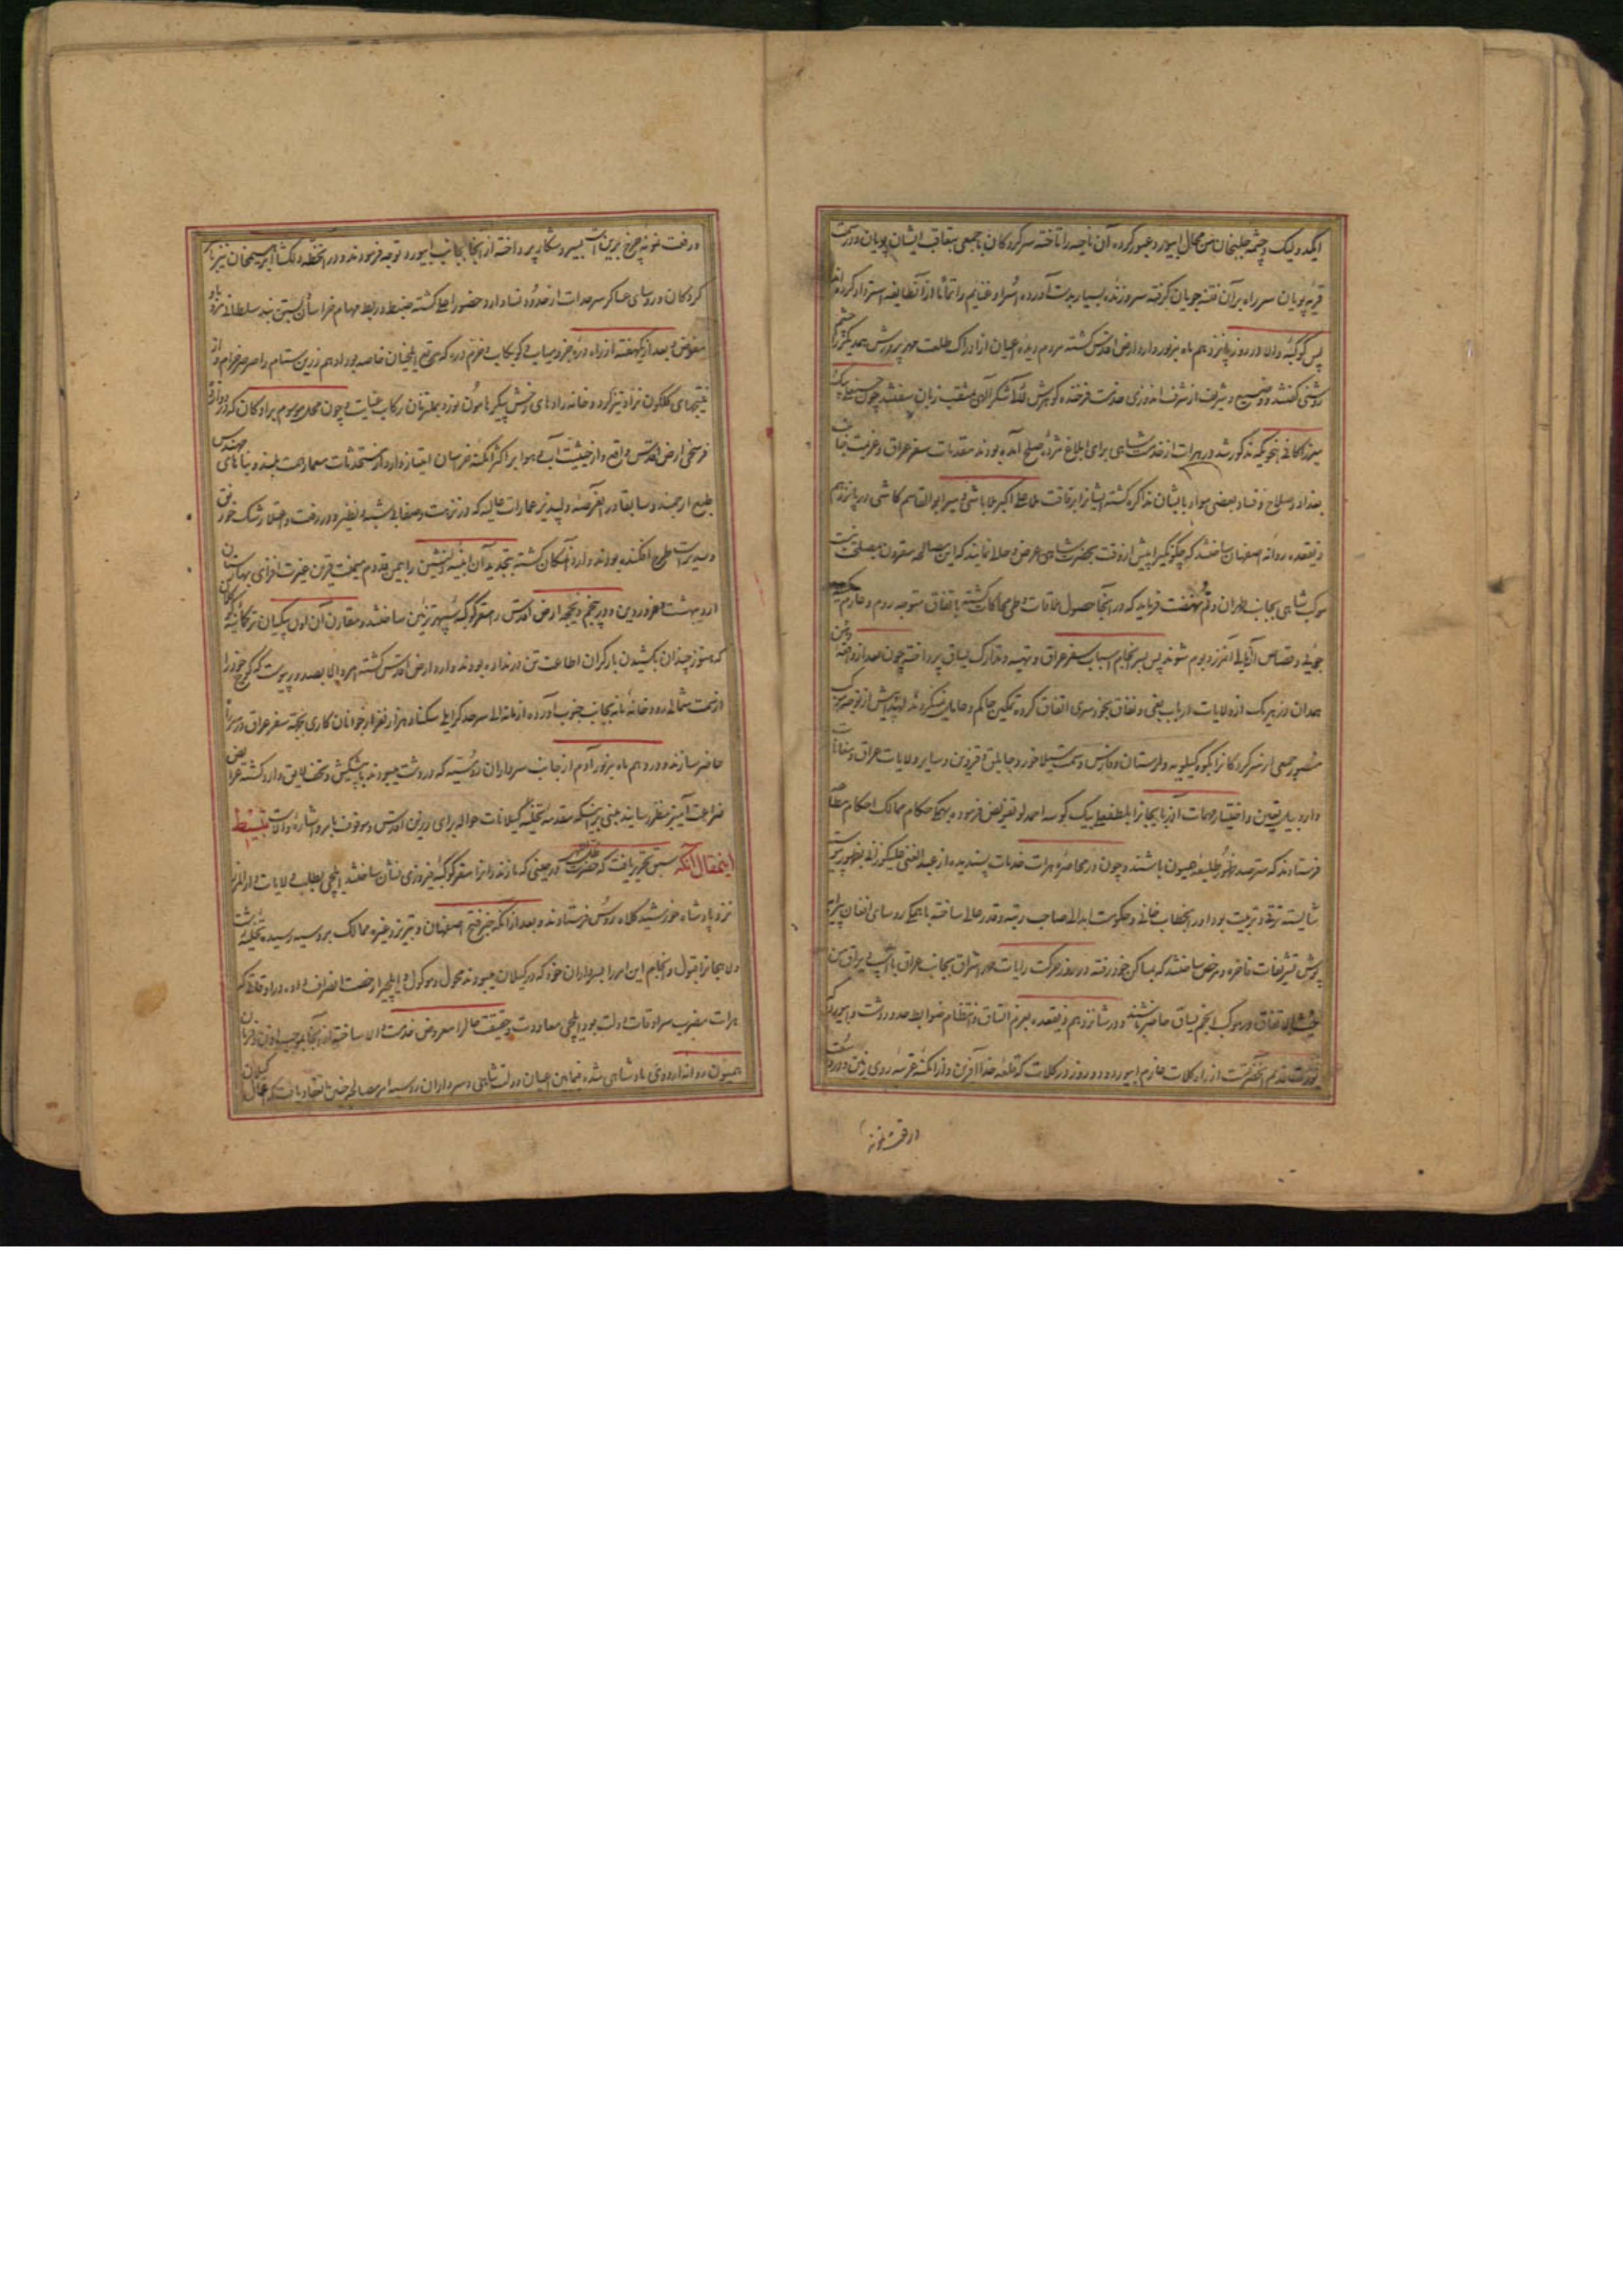 ایکدویلک و چشمه خلیجان من محال ابیورد عبور کرده آن ناحیه را تاخته سرکردگان با جمعی بتعاقب ایشان پویان و در سمت
قریه پویان سر راه بر آن فتنه جویان گرفته سر و زنده بسیار بدست آورده اسرا و غنایم را تماما از آنطایفه استرداد کردند
پس کوکبه والا در روز پانزدهم ماه مزبور وارد ارض اقدس گشته مردم دیده اعیان از ادراک طلعت مهر پرورش همدیگر را چشم
روشنی گفتند و وضیع و شریف از شرف اندوزی خدمت فرخنده گوهرش لآلی شکر الهی بمثقب زبان سفتند چون حسنعلی بیک
میرزا کافی بنحویکه مذکور شد در هرات از خدمت شاهی برای ابلاغ مژده صلح آمده بودند مقدمات سفر عراق و عزیمت جانب
بغداد و صلاح و فساد بعضی مواد با ایشان مذاکره گشته ایشانرا برفاقت ملا علی اکبر ملا باشی و میر ابوالقاسم کاشی در پانزدهم
ذیقعده روانه اصفهان ساختند که چگونگی را پیش از وقت بحضرت شاهی عرض و حالی نمایند که این مصالحه مقرون بمصلحت نیست
موکب شاهی بجانب طهران و قم نهضت فرماید که در آنجا حصول ملاقات و طی محاکات گشته باتفاق متوجه روم و عازم
جویی و قصاص اهالی آن مرز و بوم شوند پس بسرانجام اسباب سفر عراق و تهیه و تدارک یساق پرداخته چون بعد از واقعه
همدان در هر یک از ولایات ارباب بغی و نفاق بخودسری اتفاق کرده تمکین حاکم و عامل نمیکردند لهذا پیش از توجه موکب
منصور جمعی از سرکردگانرا بکوه کیلویه و لرستان و فارس و سمت سیلاخور و جابلق و قزوین و سایر ولایات عراق و
دارد بیل تعیین و اختیار مهمات آذربایجانرا بلطفعلی بیک کوسه احمدلو تفویض فرموده بهریک حکام ممالک احکام مطاعه
فرستادند که مترصد ظهور طلیعه همیون باشند و چون در محاصره هرات خدمات پسندیده از عبدالغنی علیکوزائی بظهور پیوسته
شایسته ترقی و تربیت بود او را بخطاب خانی و حکومت ابدالی صاحب رتبه و قدر عالی ساخته با همگی روسای افغان پیرایه
پوش تشریفات فاخره و مرخص ساختند که بمساکن خود رفته در روز حرکت رایات خور اشراق بجانب عراق با اسب و یراق من
حیث الاتفاق در موکب انجم یساق حاضر باشند و در شانزدهم ذیقعده بعزم اتساق و انتظام ضوابط حدود دشت و ابیورد که
مورث قدیم آنحضرت است از راه کلات عازم ابیورد و دو روز در کلات که قلعه خدا آفرین و از امکنه عرصه روی زمین در وسعت
ورفعت نمونه
ورفعت نمونه چرخ برین است بسیر و شکار پرداخته از آنجا بجانب ابیورد توجه فرمودند و در آنخطه دلگشا ابراهیمخان نیز با سر
کردگان و روسای عساکر سرحدات از حدود نسا وارد حضور اعلی گشته ضبط و ربط مهام خراسان بدستور پیش بدان سلطانی نژاد
مفوض و بعد از یکهفته از راه دره جز و میاب و کوبکان و خرم دره که مرتع ایلخیان خاصه بود ادهم زرین ستام را صرصر خرام و از
نتیجهای گلگون نژاد تیز گرد و خانه زادهای رخش پیکر هامون نورد بملتزمان رکاب عنایت و چون محل موسوم براد کان که در دوازده
فرسخی ارض اقدس واقع و از حیثیت آب و هوا بر اکثر امکنه خراسان امتیاز دارد از مستحدثات معمار همت بلند و بناهای مهندس
طبع ارجمند و سابقا در آنعرصه دلپذیر عمارات عالیه که در نزهت و صفا بی شبه و نظیر و در رفعت و اعتلا رشک خورنق
و سدیر است طرح افکنده بودند وارد آنمکان گشته بتجدید آن ابنیه دلنشین را بیمن قدوم میمنت قرین غیرت افزای بهارستان
اردیبهشت و فروردین و در پنجم ذیحجه ارض اقدس را مستقر کوکبه سپهر تزئین ساختند و مقارن آن اون بیگیان ترکمانیه کوکلان
که هنوز چندان بکشیدن بار گران اطاعت تن در نداده بودند وارد ارض اقدس گشته امر والا بصدور پیوست که کوچ خود را
از سمت شمالی رودخانه نه بجانب جنوب آورده از مانه الی سرحد کرایلی سکنا و هزار نفر از جوانان کاری بجهة سفر عراق در سرراه
حاضر سازند و در دهم ماه مزبور آدم از جانب سرداران روسیه که در رشت میبودند با پیشکش و تحف لایق وارد گشته عرایض
ضراعت آمیز بنظر رسانید مبنی بر اینکه مقدمه تخلیه گیلانات حواله برای رزین اقدس و موقوف بامر و اشاره والاست تبسیط
اینمقال آنکه سبق تحریر یافت که حضرت ظل اللهی در حینی که مازندرانرا مقر کوکبه فیروزی نشان ساختند ایلچی بطلب ولایات دارالمرز
نزد پادشاه خورشید کلاه روس فرستادند و بعد از آنکه خبر فتح اصفهان و تبریز و غیره ممالک بروسیه رسیده تخلیه رشت
و لاهیجانرا قبول و انجام این امر را بسرداران خود که در گیلان میبودند محول و موکول و ایلچی را رخصت انصراف داده در اوقاتی که
هرات مضرب سرادقات دولت بود ایلچی معاودت و حقیقت حال را معروض خدمت والا ساخته از آنجا بموجب اذن و فرمان
همیون روانه اردوی پادشاهی شده فیمابین اعیان دولت شاهی و سرداران روسیه امر مصالحه چنین انعقاد یافت که گیلان